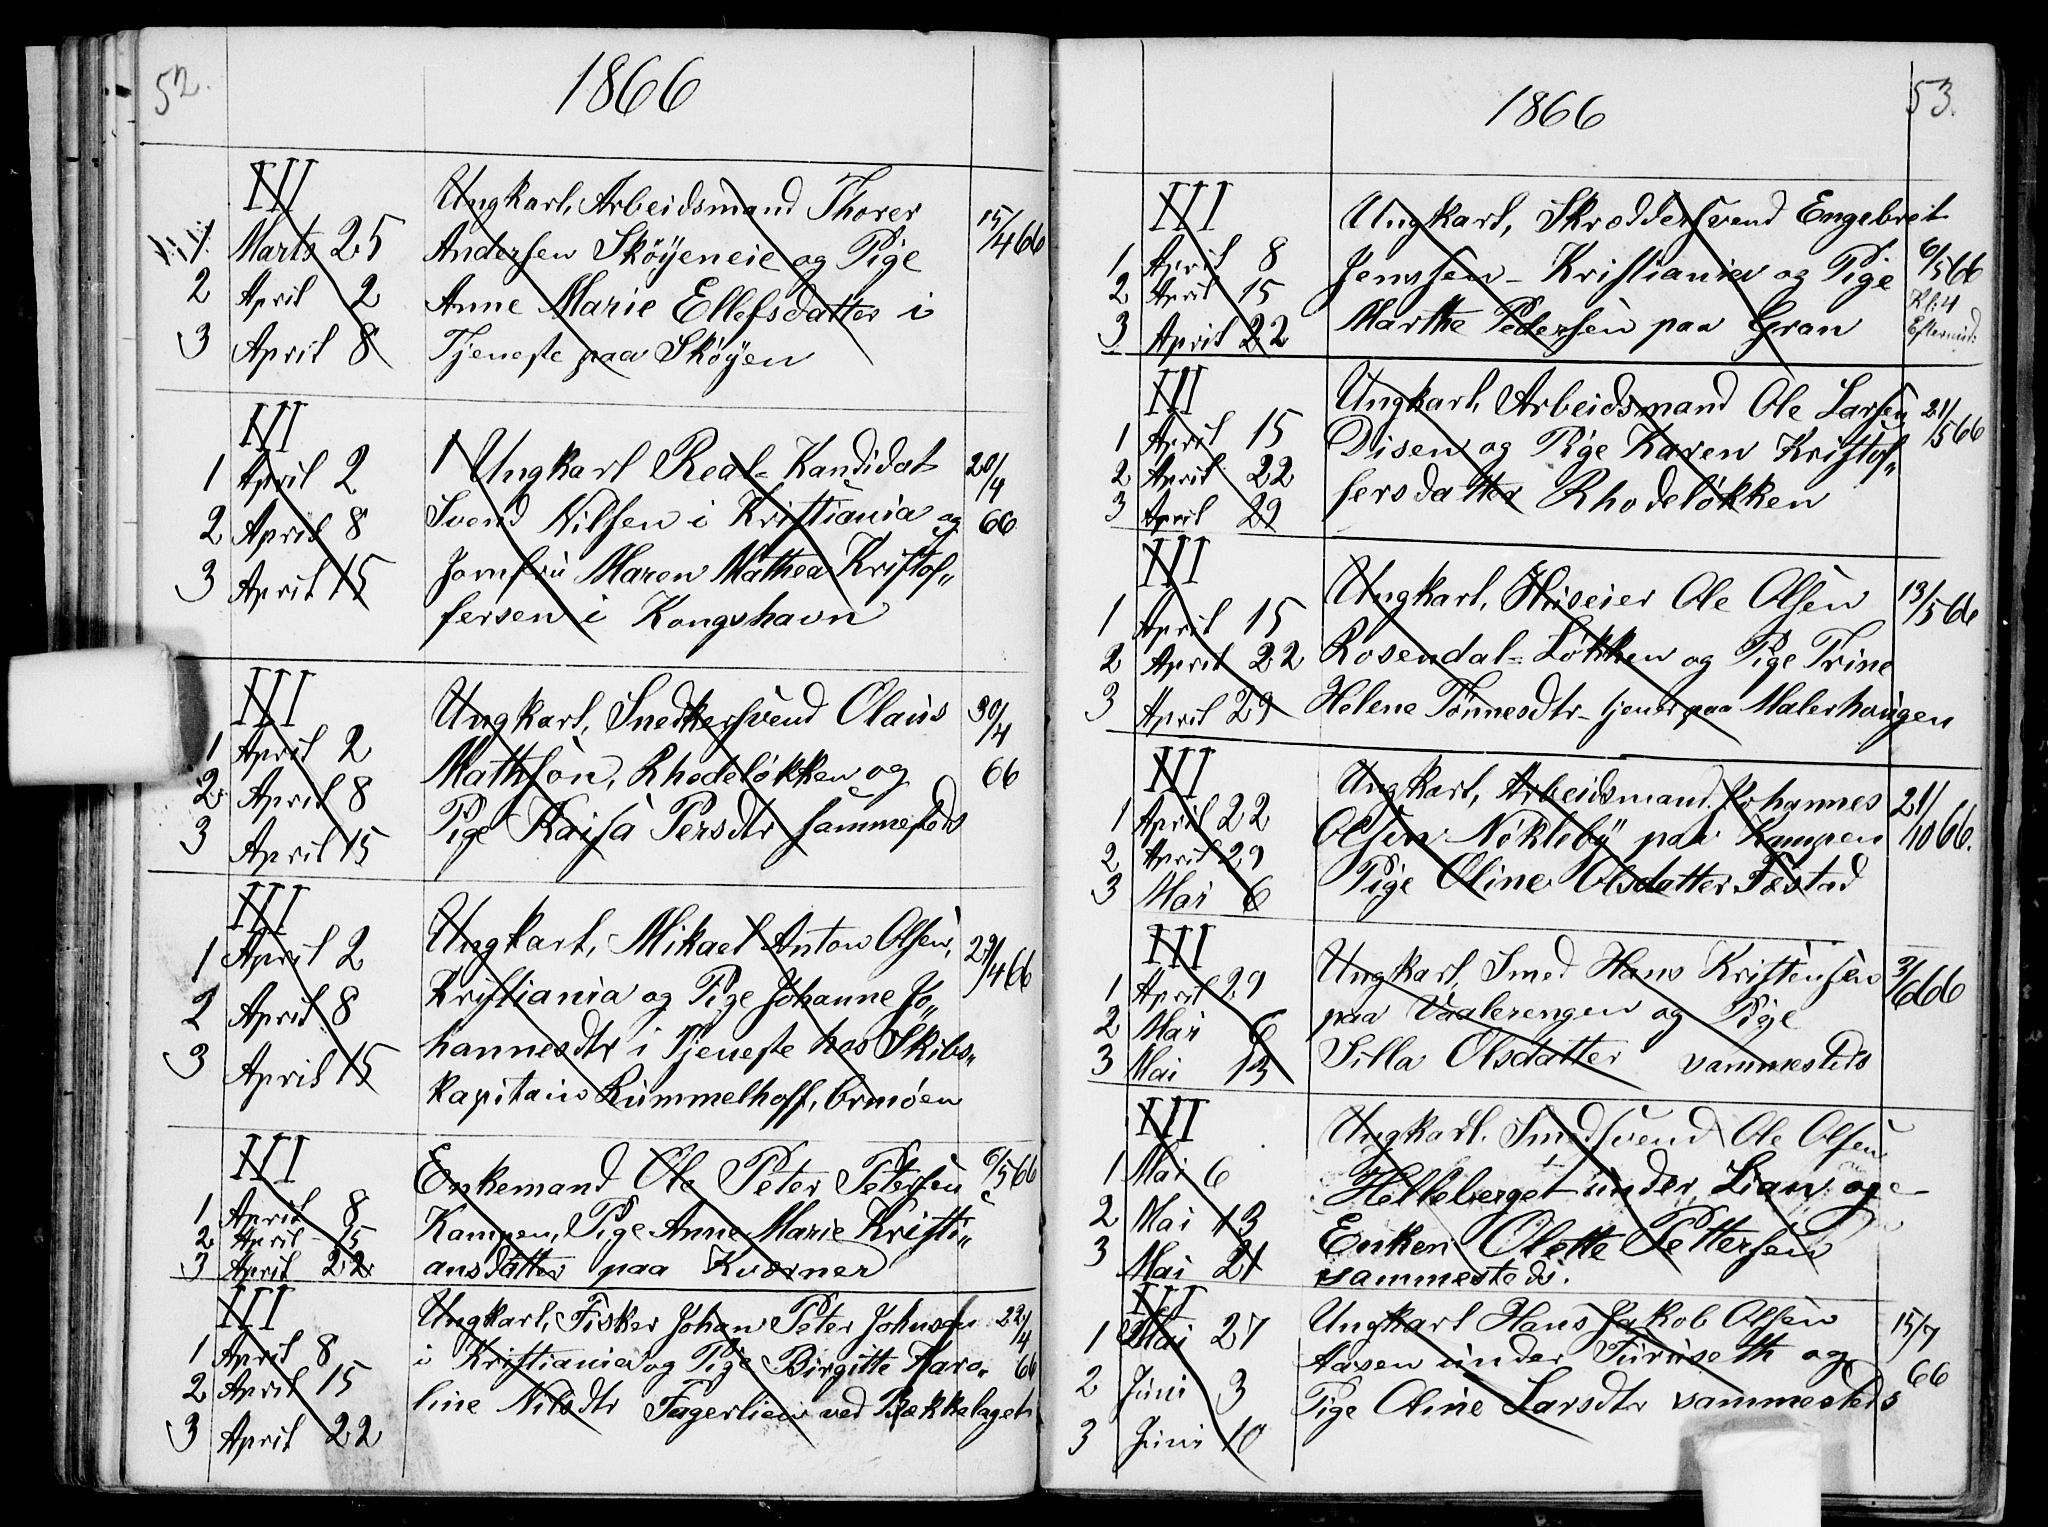 52.
1866
III
Ungkarl, Arbeidsmand Thorer
1 Marts 25 Andersen Sköyeneie og Pige 15/4 66
2 April 2 Anne Marie Ellefsdatter i
3 April 8 Tjeneste paa Sköyen
III
1 April 2 Ungkarl Real-Kandidat 28/4
2 April 8 Svend Nilsen i Kristiania og 66
3 April 15 Jomfru Maren Mathea Kristof„
fersen i Kongshavn
III
Ungkarl, Snedkersvend Olaus 30/4
1 April 2
2 April 8 Mathson, Rhodeløkken og 66
3 April 15 Pige Kajsa Persdtr sammesteds
III
1 April 2 Ungkarl, Mikael Anton Olsen, 29/4 66
2 April 8 Kristiania og Pige Johanne Jo„
3 April 15 hannesdtr i Tjeneste hos Skibs„
kapitain Rummelhoff, Ormöen
III
Enkemand Ole Peter Petersen 6/5 66
1 April 8 Kampen, Pige Anne Marie Kristi„
2 April 15
3 April 22 ansdatter paa Kværner
III
Ungkarl, Fisker Johan Peter Johnsen 22/4
1 April 8 i Kristiania og Pige Birgitte Karo„ 66
2 April 15 line Nilsdtr Fagerlien ved Bækkelaget
3 April 22
53.
1866
III
Ungkarl, Skræddersvend Engebret
1 April 8 Jenssen - Kristiania og Pige 6/5 66
2 April 15 Kl: 4
3 April 22 Marthe Pedersen paa Gran Eftermid:
III
Ungkarl, Arbeidsmand Ole Larsen 21/5 66
1 April 15 Disen og Pige Karen Kristof„
2 April 22
3 April 29 fersdatter Rhodeløkken
III
Ungkarl, Huseier Ole Olsen 13/5 66
1 April 15
2 April 22 Rosendal-Løkken og Pige Trine
3 April 29 Helene Tönnesdtr - tjener paa Malerhaugen
III
Ungkarl, Arbeidsmand Johannes 21/10 66.
1 April 22 Olsen Nökleby paa Kampen
2 April 29
3 Mai 6 Pige Oline Olsdatter Fæstad
III
Ungkarl, Smed Hans Kristensen 3/6 66
1 April 29 paa Vaalerengen og Pige
2 Mai 6
3 Mai 13 Silla Olsdatter sammesteds
III
Ungkarl. Smedsvend Ole Olsen
1 Mai 6 Helleberget under Lian og
2 Mai 13 Enken Olette Pettersen
3 Mai 21 sammesteds.
III
1 Mai 27 Ungkarl Hans Jakob Olsen 15/7
2 Juni 3 Aasen under Furuseth og 66
3 Juni 10 Pige Oline Larsdtr sammesteds